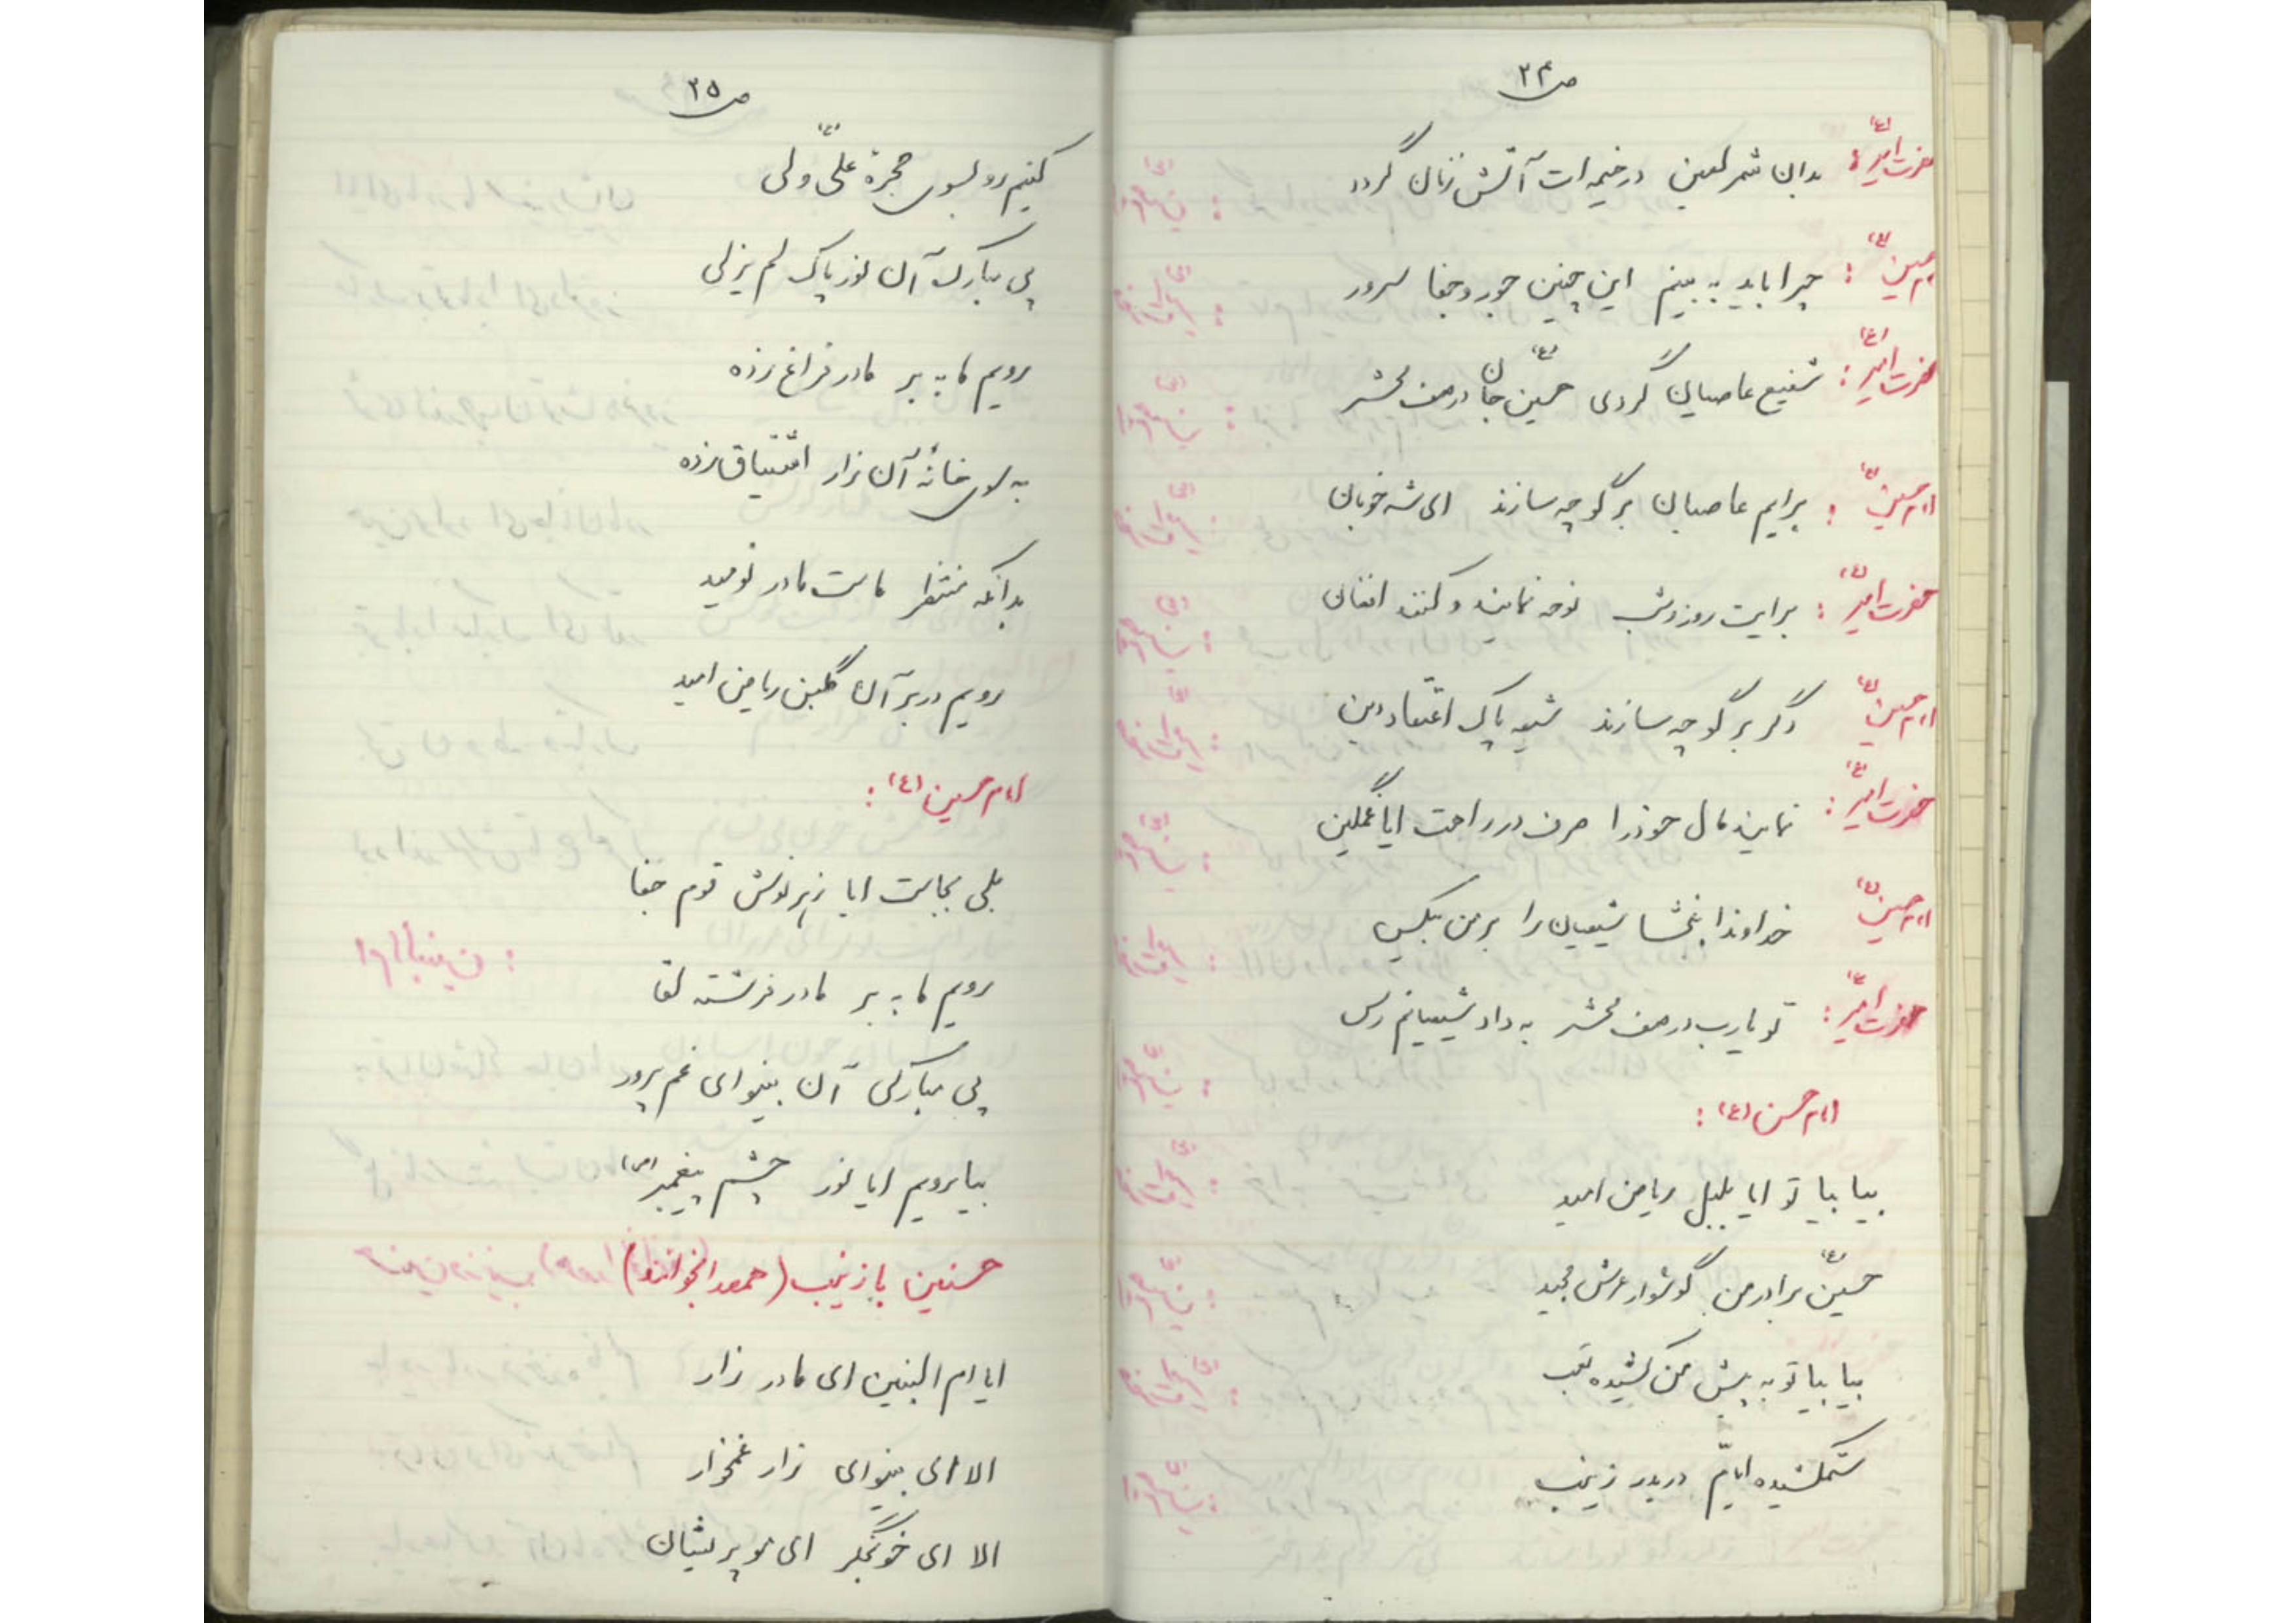 ص ۲۴
حضرت امیر(ع): بدان شمر لعین در خیمه ات آتش زنان گردد
امام حسین(ع): چرا باید به بینم این چنین جور و جفا سرور
حضرت امیر(ع): شفیع عاصیان گردی حسین(ع) جان در صف محشر
امام حسین(ع): برایم عاصیان برگو چه سازند ای شه خوبان
حضرت امیر(ع): برایت روز و شب نوحه نمایند و کنند افغان
امام حسین(ع) دگر برگو چه سازند شیعه پاک اعتقاد دین
حضرت امیر(ع): نمایند مال خود را صرف در راهت ایا غمگین
امام حسین(ع) خداوندا ببخشا شیعیان را بر من بیکس
حضرت امیر(ع): تو یا رب در صف محشر به داد شیعیانم رس
امام حسن(ع):
بیا بیا تو ایا بلبل ریاض امید
حسین(ع) برادر من گوشوار عرش مجید
بیا بیا تو به پیش من کشیده تعب
ستمکشیده ایام دربدر زینب
ص ۲۵
کنیم رو بسوی حجرهٔ علی(ع) ولی
پی مبارک آن نور پاک لم یزلی
رویم ما به بر مادر فراغ زده
به سوی خانهٔ آن زار اشتیاق زده
بدانکه منتظر ماست مادر نومید
رویم در بر آن گلبن ریاض امید
امام حسین(ع):
بلی بجاست ایا زهر نوش قوم جفا
رویم ما به بر مادر فرشته لقا
پی مبارکی آن بینوای غم پرور
بیا برویم ایا نور چشم پیغمبر(ص)
حسنین با زینب (همصدا بخوانند)
ایا ام البنین ای مادر زار
الا ای بینوای زار غمخوار
الا ای خونجگر ای مو پریشان